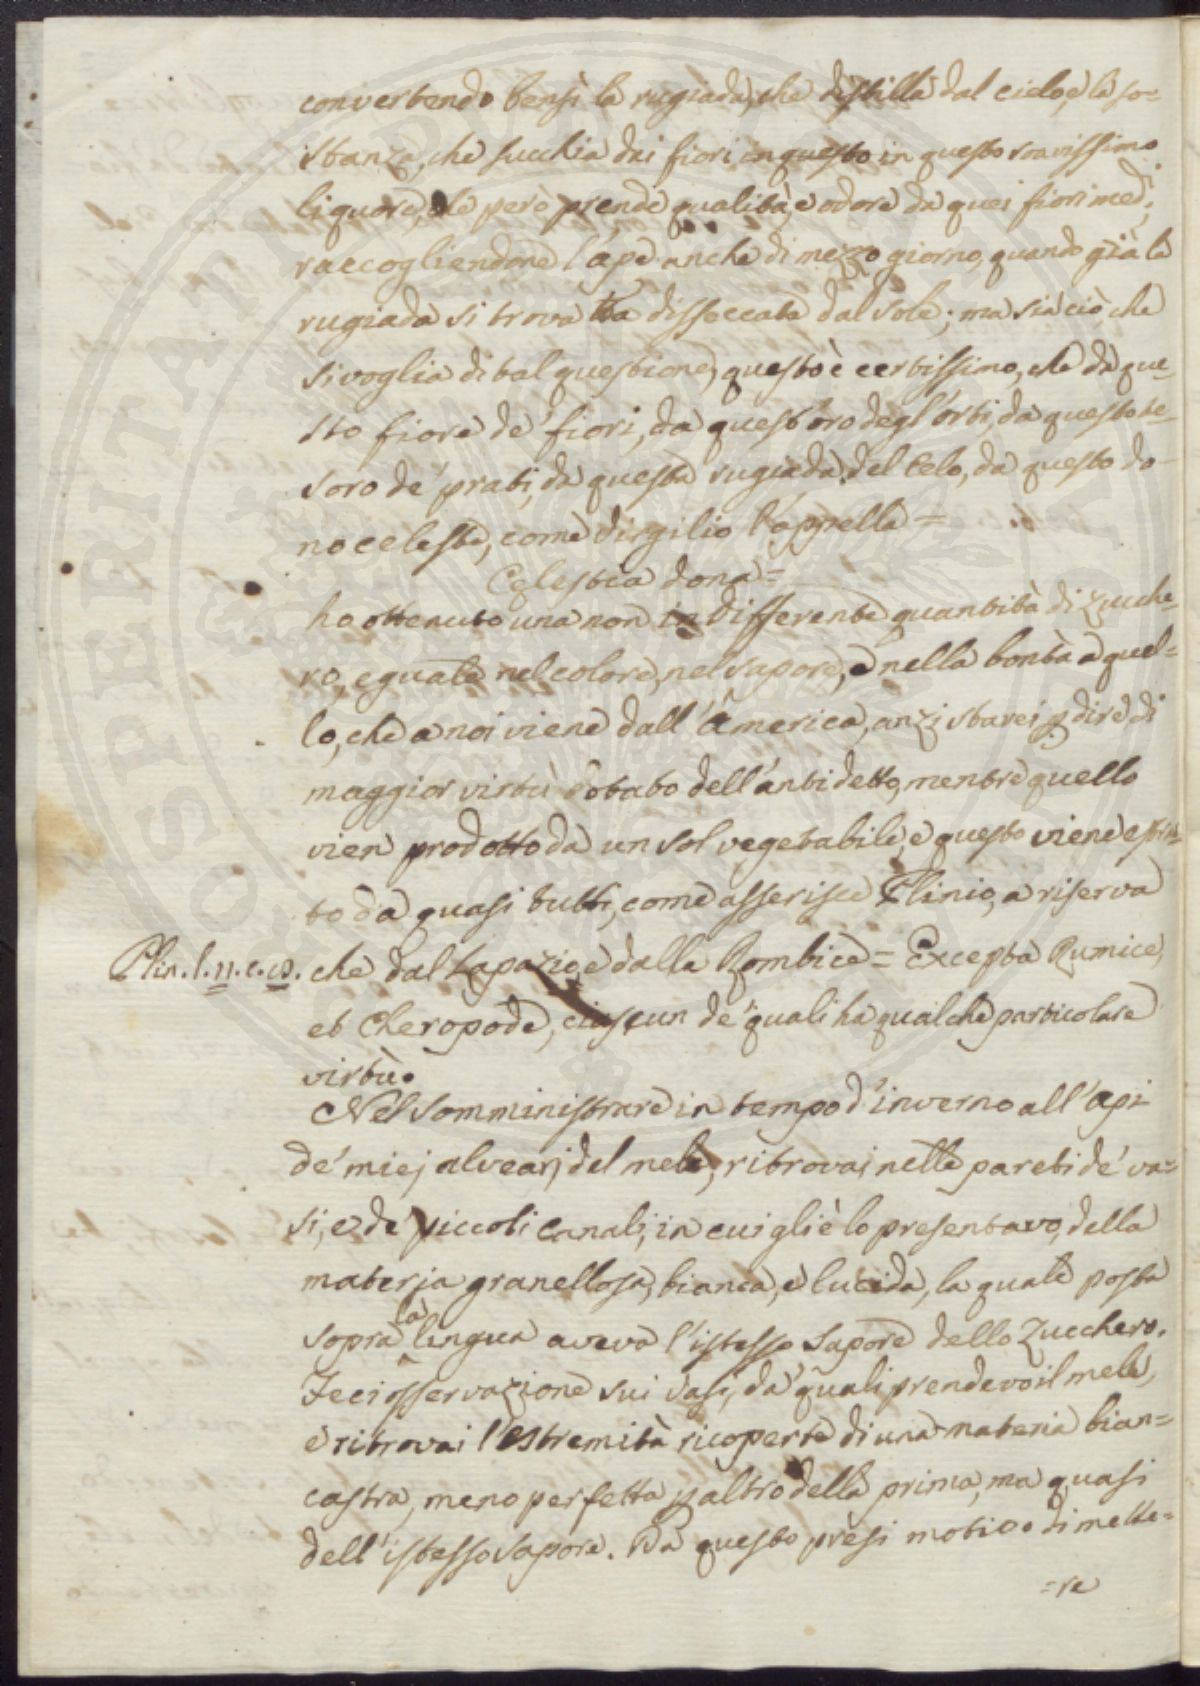 convertendo bensì la rugiada, che distilla dal cielo, e la so=
stanza, che succhia dai fiori in questo in questo soavissimo
liquore, che però prende qualità, e odore da quei fiori med.i;
raccogliendone l'ape anche di mezzo giorno, quando già la
rugiada si trova dissoccata dal sole; ma sia ciò, che
si voglia di tal questione, questo è certissimo, che da que=
sto fiore de' fiori, da quest'oro degl'orti, da questo te=
soro de' prati, da questa rugiada del Celo, da questo do=
no celeste, come Virgilio l'appella =
Celestia dona =
ho ottenuto una non indifferente quantità di zucche=
ro, eguale nel colore, nel sapore, e nella bontà a quel=
lo, che a noi viene dall'America, anzi starei p dire di
maggior virtù dotato dell'antidetto, mentre quello
vien prodotto da un sol vegetabile, e questo viene estrat=
to da quasi tutti, come asserisce Plinio, a riserva
Plin. l. 11. c. 18. che dal Lapazio, e dalla Rombice = Excepta Rumice,
et Cheropode, ciascun de' quali ha qualche particolare
virtù.
Nel somministrare in tempo d'inverno all'api
de' miej alvearj del mele, ritrovai nelle pareti de' va=
si, e de' piccoli canali, in cui gliè lo presentavo, della
materja granellosa, bianca, e lucida, la quale posta
sopra la lingua aveva l'istesso sapore dello Zucchero.
Feci osservazione sui vasi, da' quali prendevo il mele,
e ritrovai l'estremità ricoperte di una materia bian=
castra, meno perfetta p altro della prima, ma quasi
dell'istesso sapore. Da questo presi motivo di mette=
=re